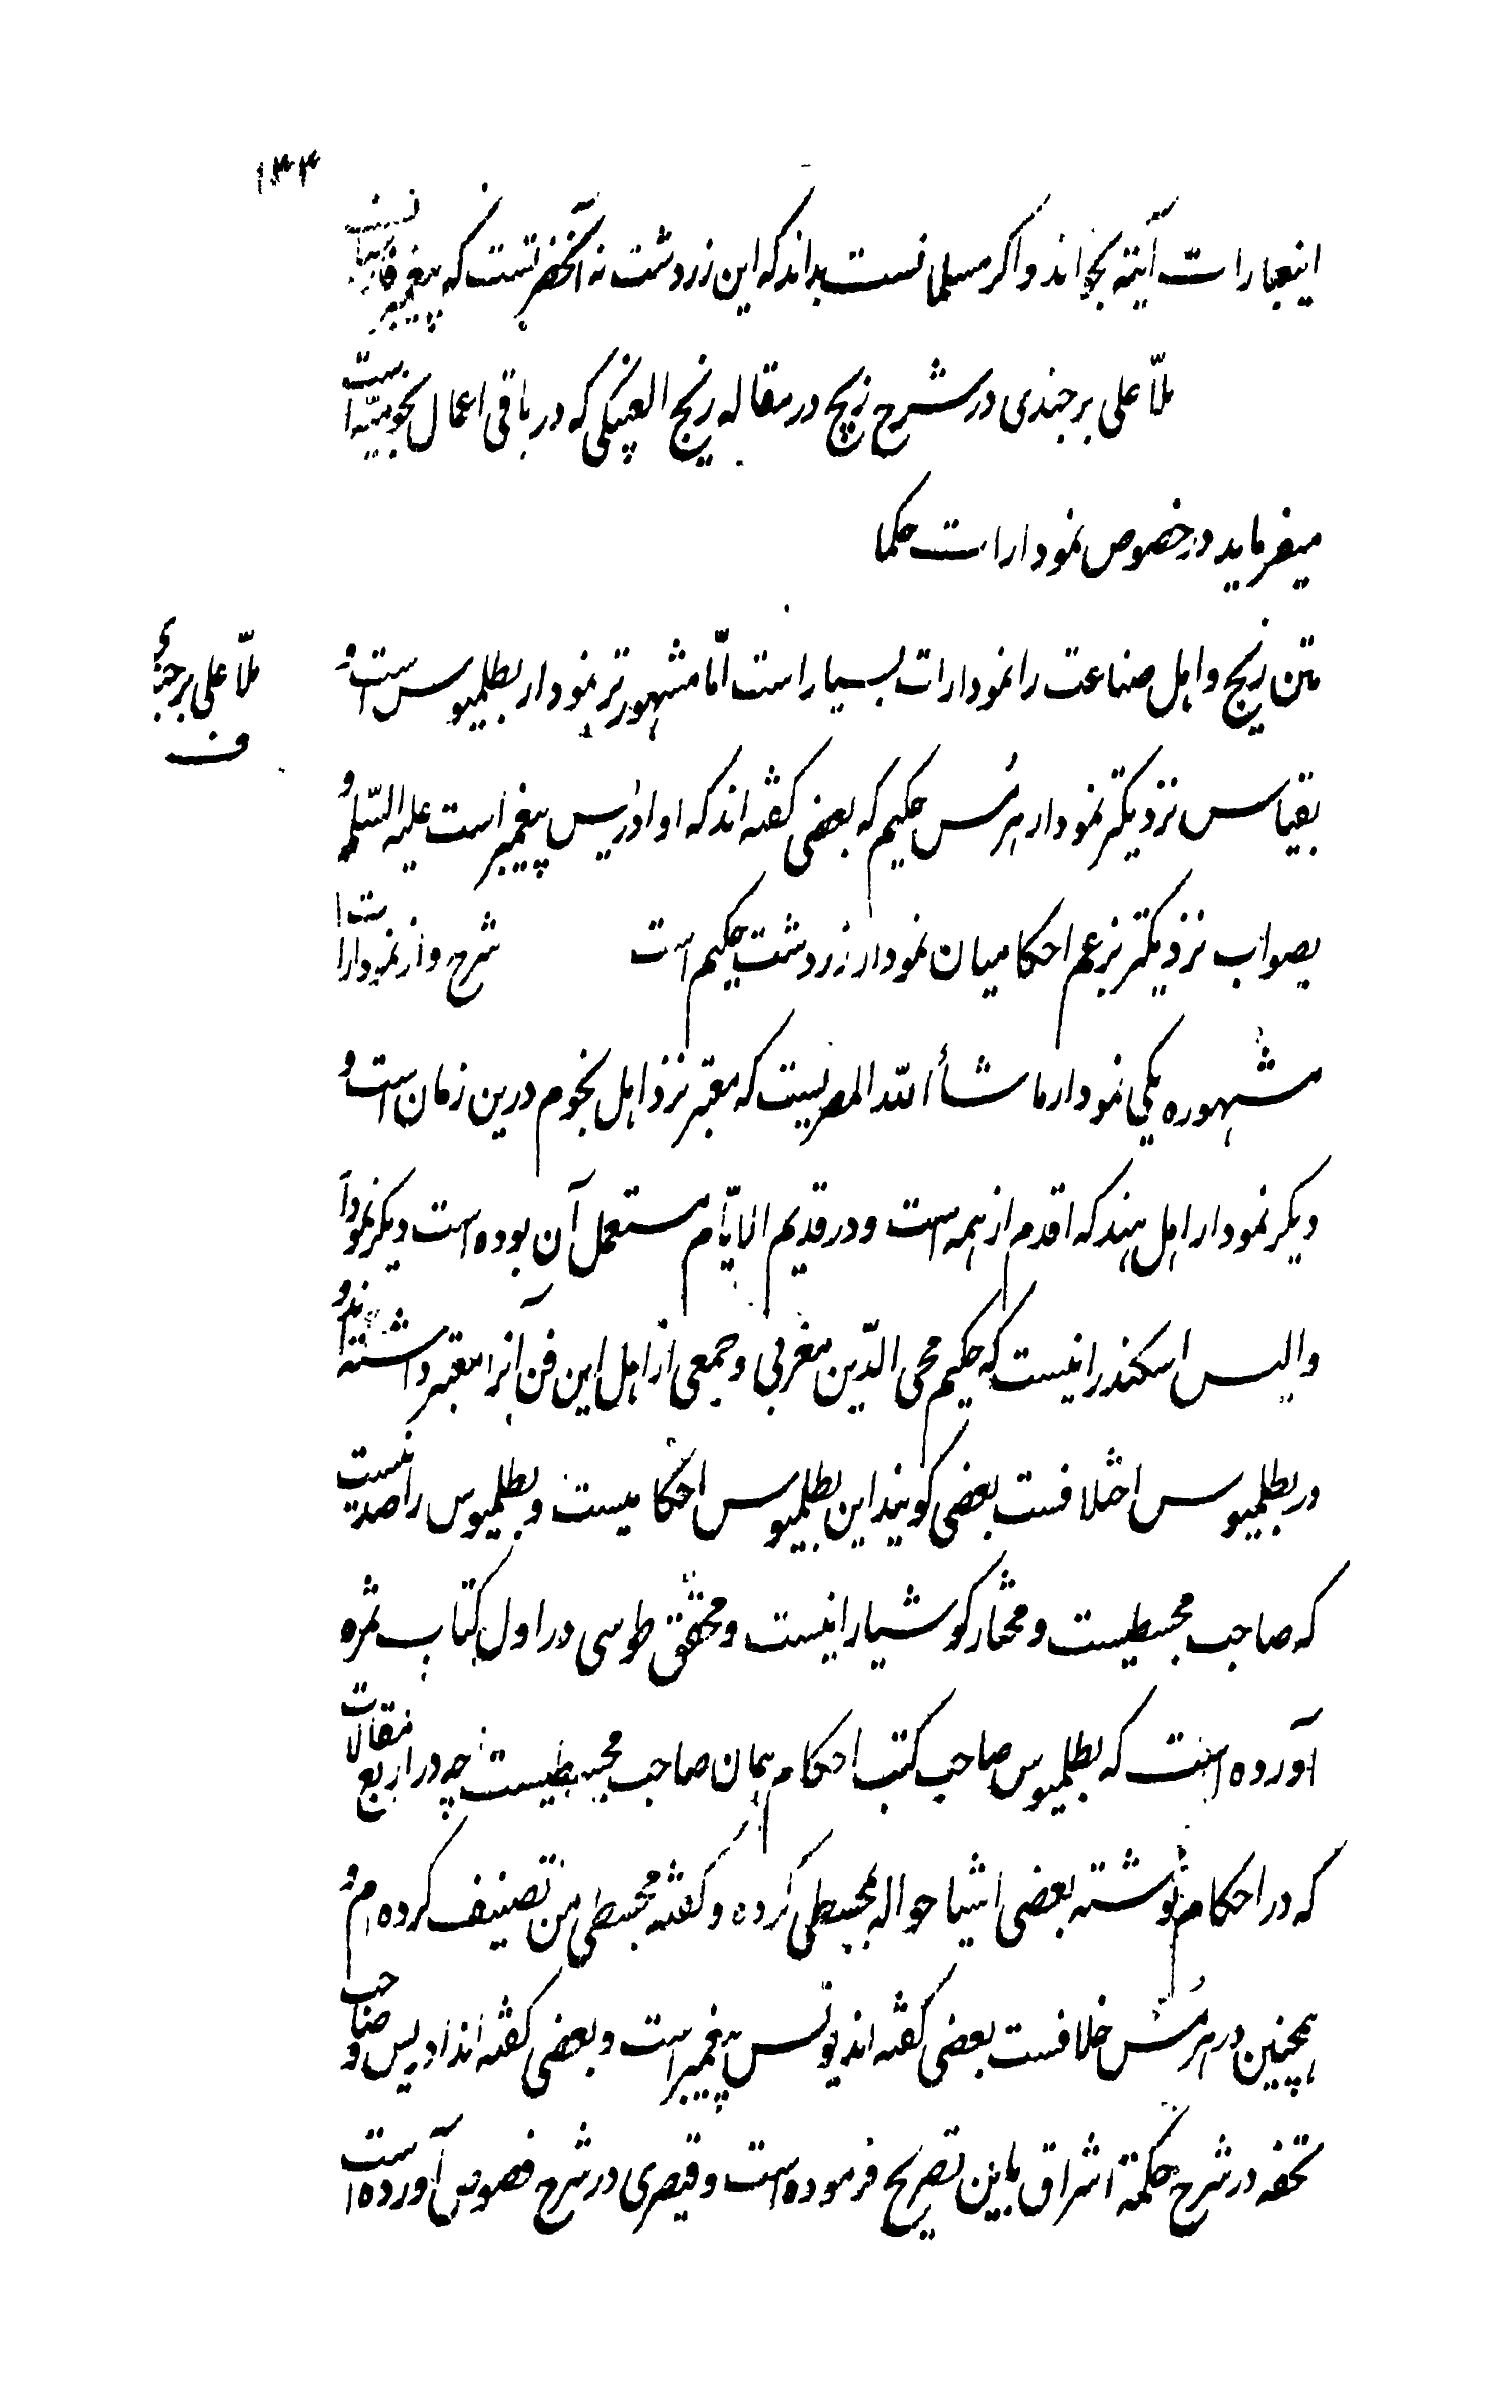 ۱۳۴
اینعبارات آیته بخواند و اکر مسلمانست بداند که این زردشت نه آنحضرتست که پیغمبر
ملّا علی برجندی در شرح زیج در مقاله زیج الغبیکی که در باقی اعمال نجومیّه است
میفرماید در خصوص نمودارات حکما
متن زیج و اهل صناعت را نمودارات بسیار است امّا مشهورتر نمودار بطلمیوس است و
ملّا علی برجندی
ف
بقیاس نزدیکتر نمودار هرمس حکیم که بعضی کفته اند که او ادریس پیغمبر است علیه السّلم و
بصواب نزدیکتر بزعم احکامیان نمودار زردشت حکیم است شرح و از نمودارات
مشهوره یکی نمودار ماشأ الله المصریست که معتبر نزد اهل نجوم درین زمان است و
دیکر نمودار اهل هند که اقدم از همه است و در قدیم الایّام مستعمل آن بوده است دیکر نمودار
والیس اسکندرانیست که حکیم محی الدّین مغربی و جمعی از اهل این فن آنرا معتبر داشته اند و
در بطلمیوس اختلافست بعضی کویند این بطلمیوس احکامیست و بطلمیوس راصد نیست
که صاحب مجسطیست و مختار کوشیار اینست و محقّق طوسی در اول کتاب ثمره
آورده است که بطلمیوس صاحب کتب احکام همان صاحب مجسطیست چه در اربع مقالات
که در احکام نوشته بعضی اشیا حواله بمجسطی کرده و کفته مجسطی من تصنیف کرده ام و
همچنین در هرمس خلافست بعضی کفته اند یونس پیغمبر است و بعضی کفته اند ادریس و صاحب
تحفه در شرح حکمة اشراق باین تصریح فرموده است و قیصری در شرح فصوص آورده است